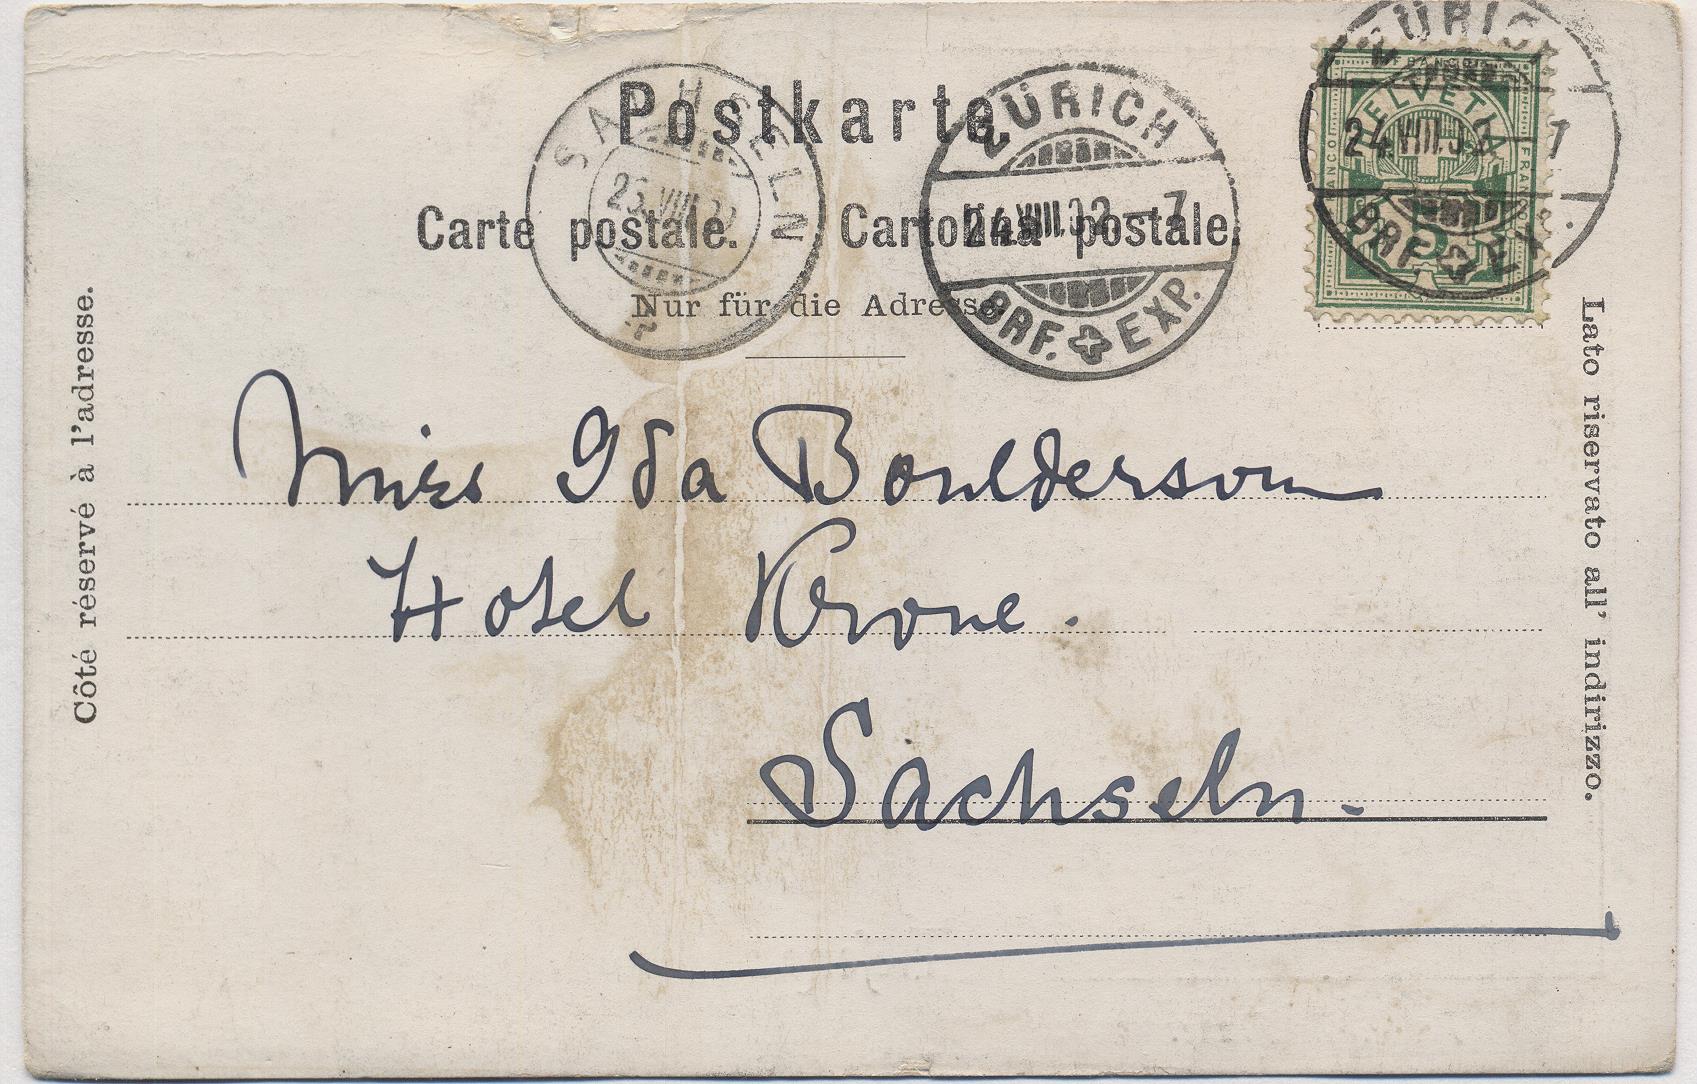 Postkarte
Carte postale. Cartolina postale.
Nur für die Adresse.
SACHSELN
25.VIII.02
ZÜRICH
24.VIII.02-7
BRF. EXP.
ZÜRICH
24.VIII.02 7
BRF. EXP.
FRANCO
HELVETIA
FRANCO
5
Côté réservé à l'adresse.
Lato riservato all' indirizzo.
Miss Ida Boulderson
Hotel Krone.
Sachseln.